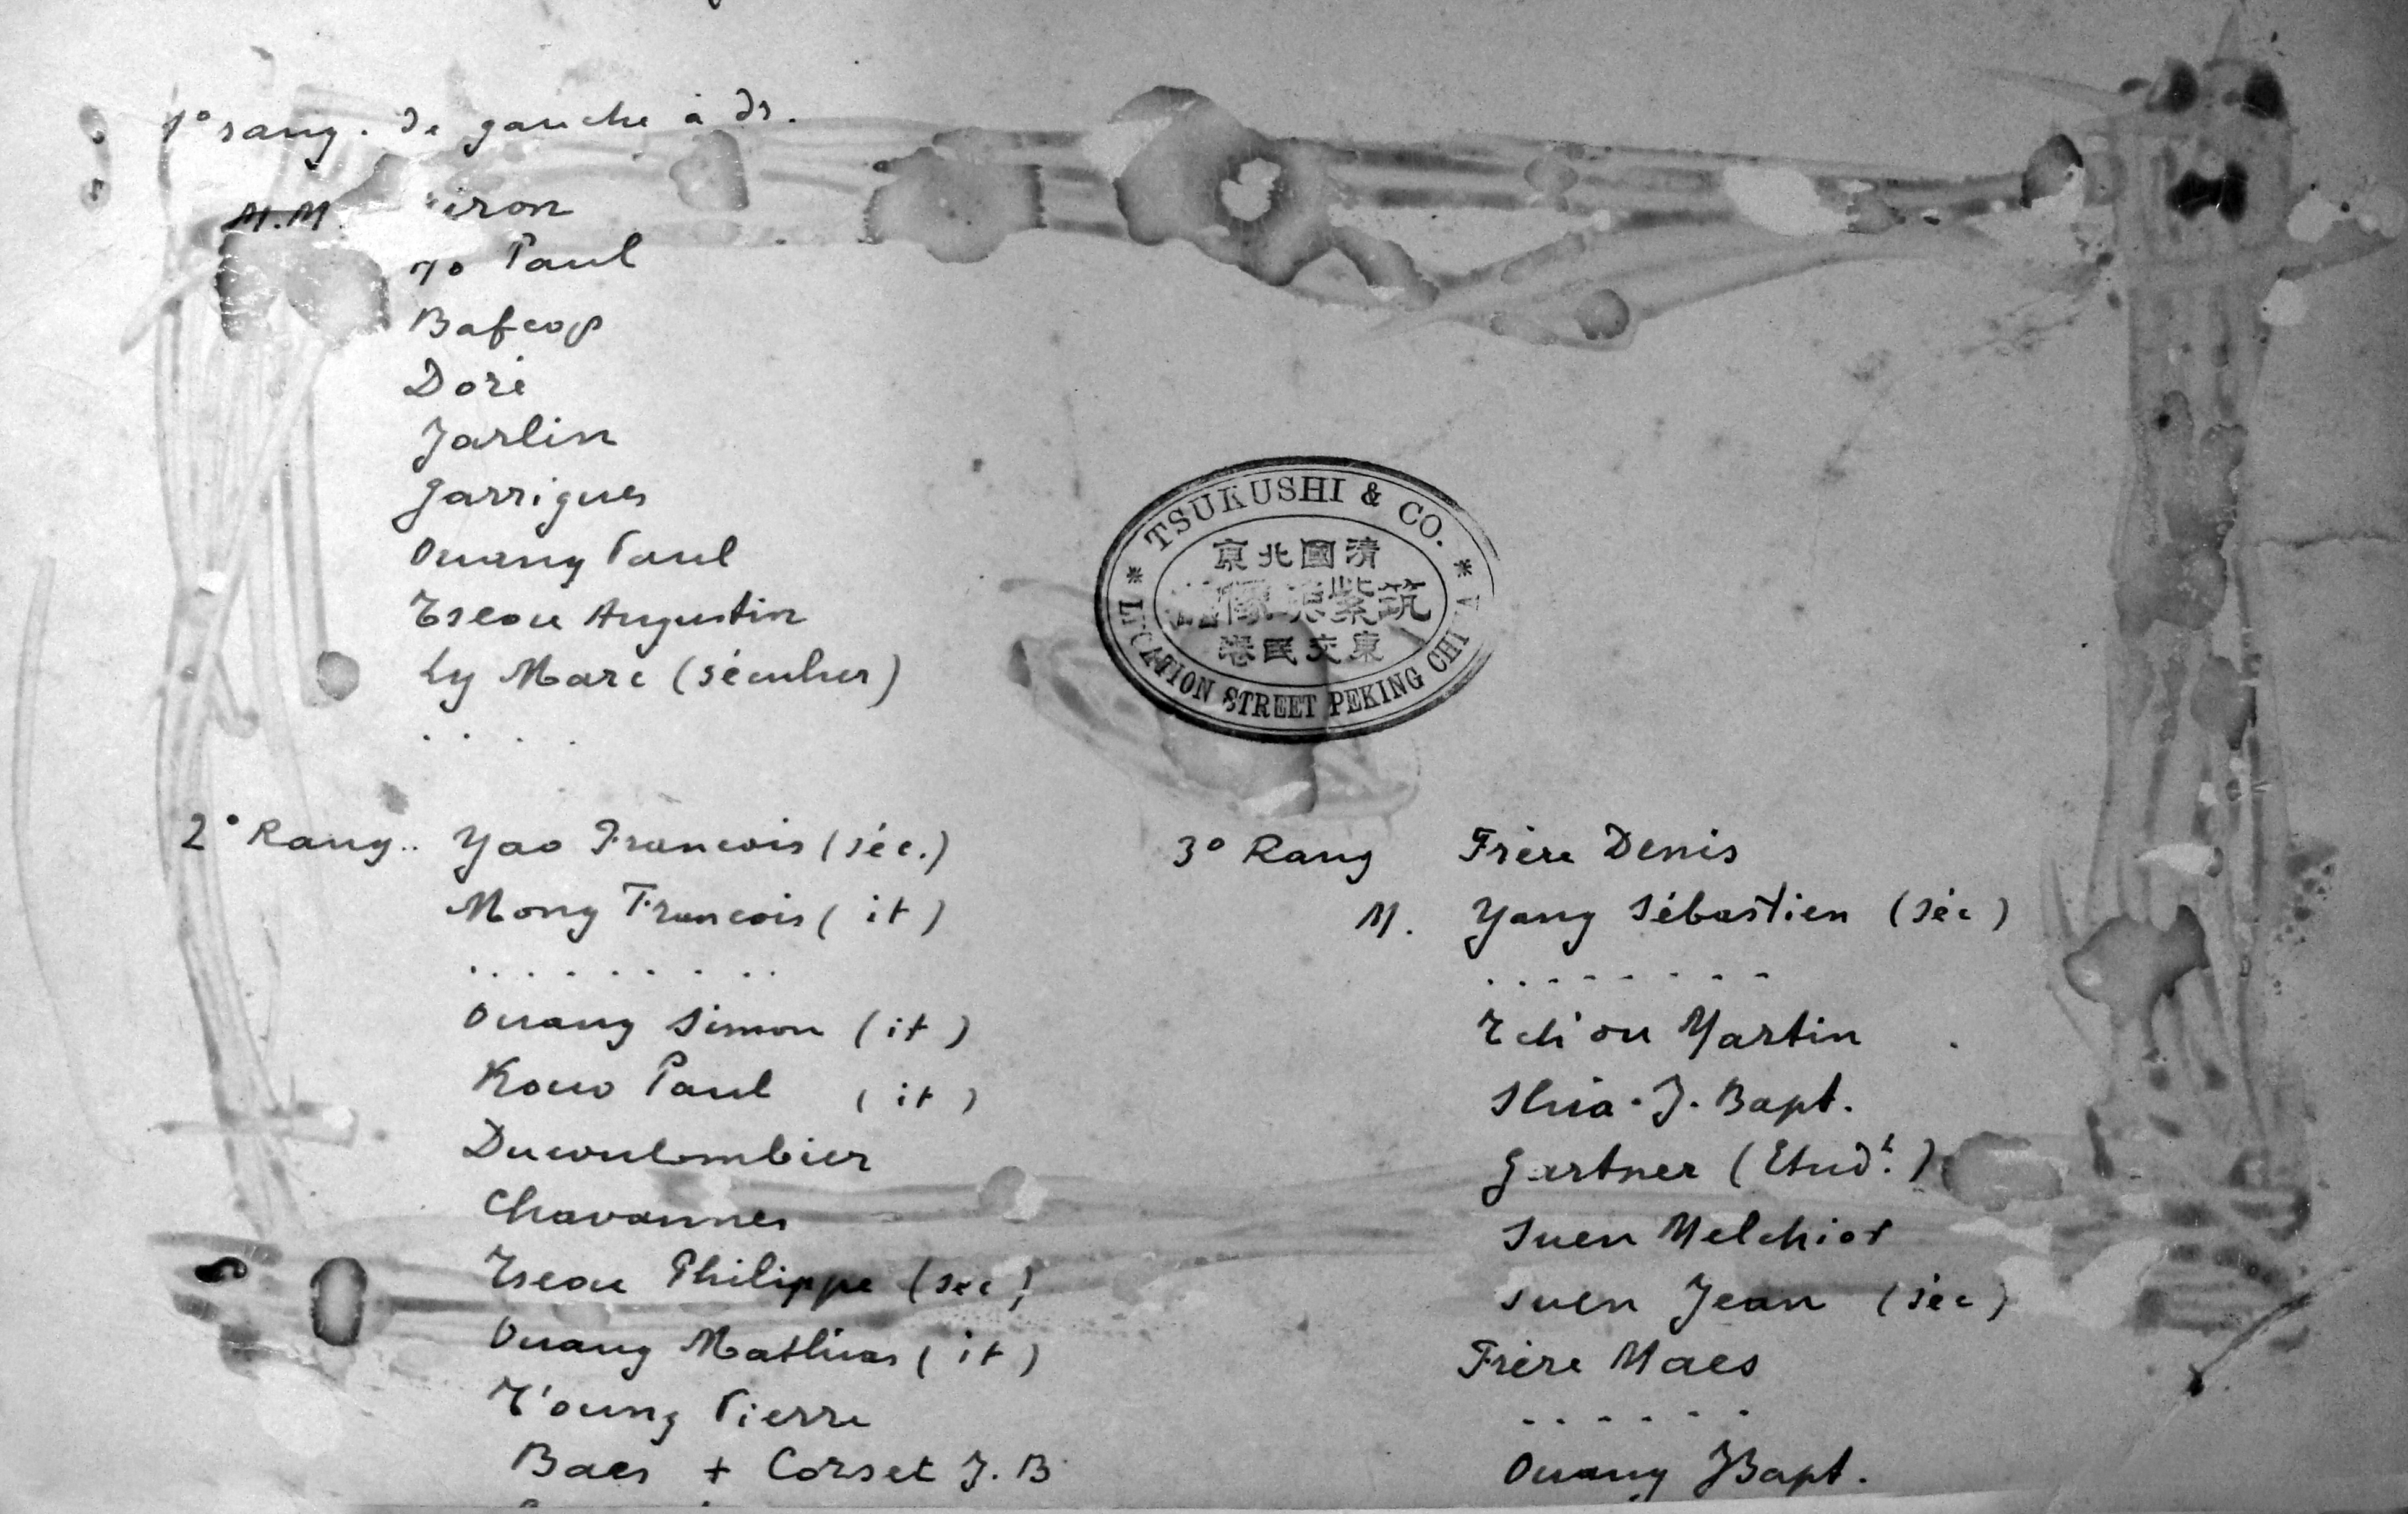 1° rang. de gauche à dr.
M.M. iron
yo Paul
Bafcop
Doré
Jarlin
Garrigues
Ouang Paul
Tseou Augustin
Ly Marc (séculier)
. . . .
TSUKUSHI & CO.
清國北京
筑紫 像
東交民巷
LEGATION STREET PEKING CHINA
2° Rang.. Yao Francois (séc.)
Mong Francois ( it )
. . . . . . . . .
Ouang Simon ( it )
Kouo Paul ( it )
Ducoulombier
Chavannes
Tseou Philippe (sec)
Ouang Mathias ( it )
T'oung Pierre
Baes + Corset J. B
3° Rang Frère Denis
M. Yang Sébastien (séc)
. . . . . . . .
Tch'ou Martin
Shia. J. Bapt.
Gartner (Etudt.)
Suen Melchior
Suen Jean (séc)
Frère Maes
. . . . . .
Ouang JBapt.